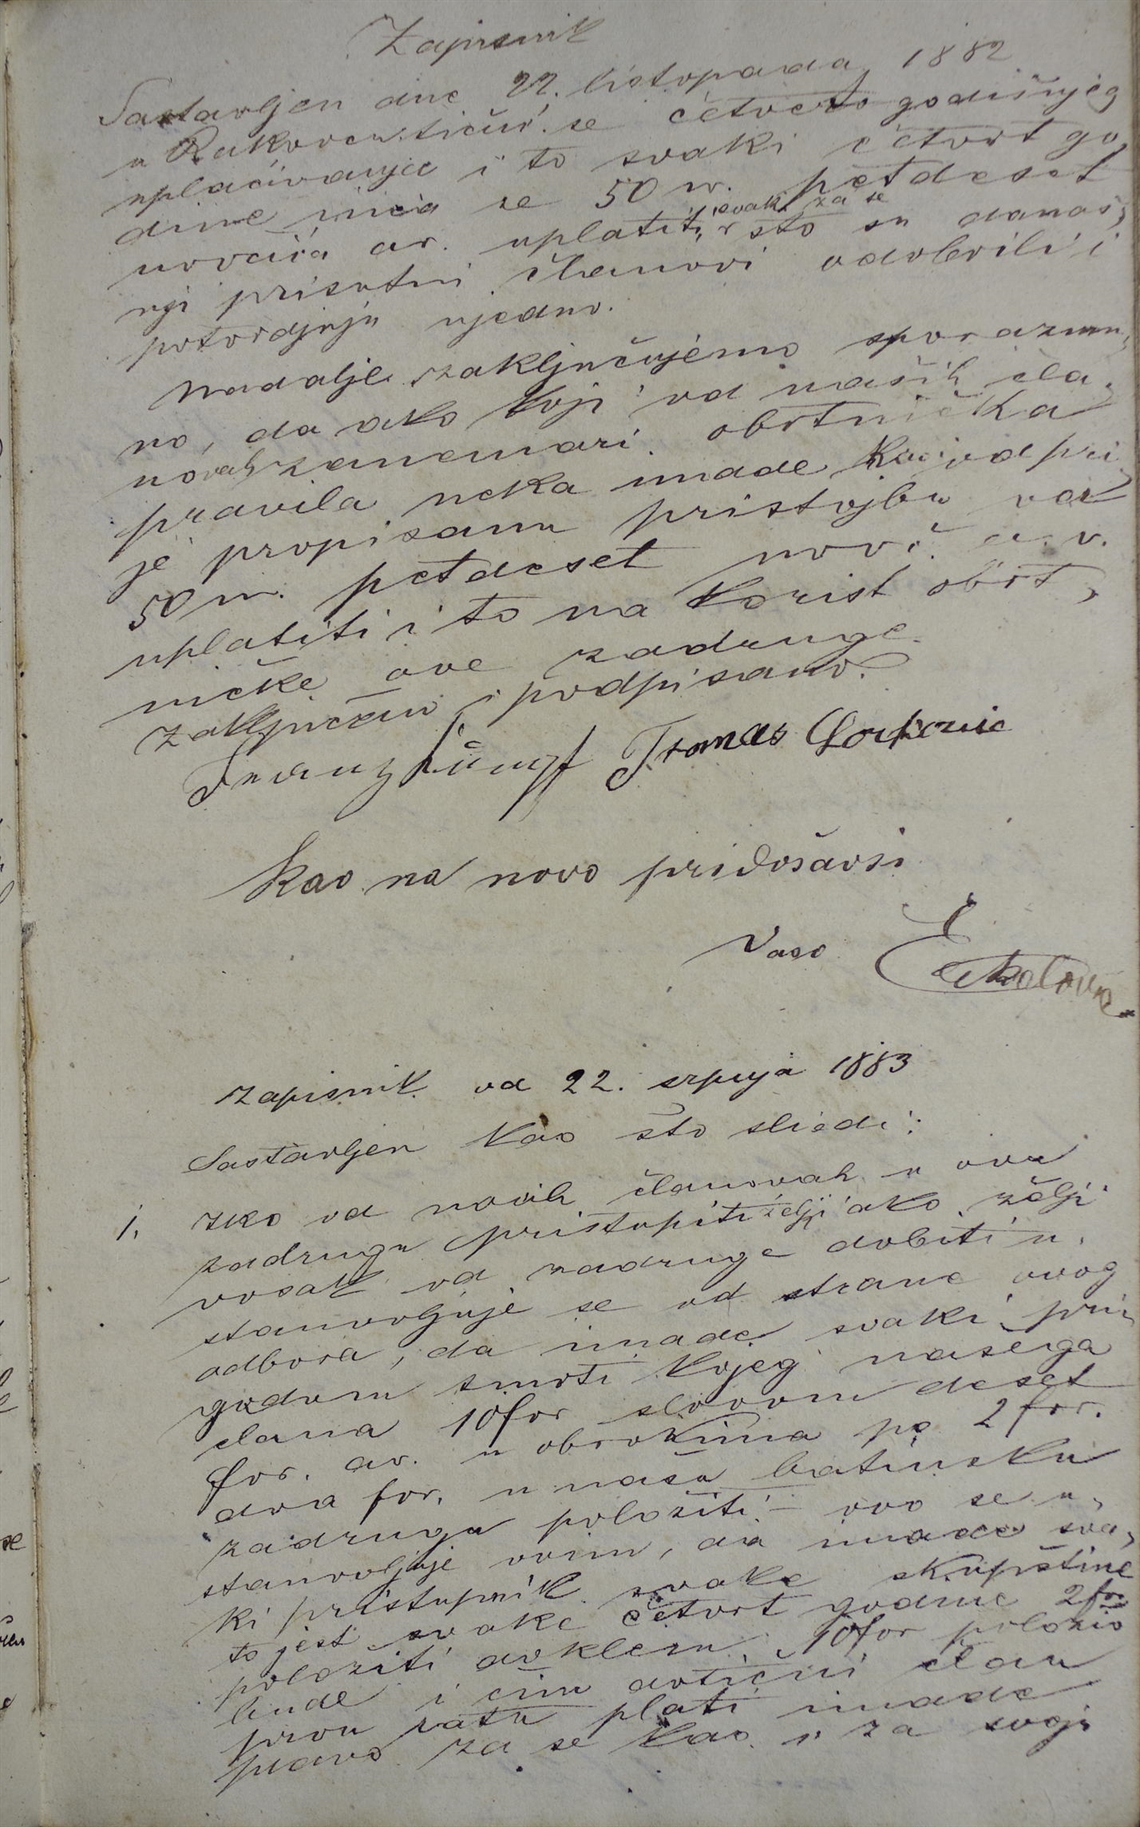 Zapisnik
Sastavljen dne 22. listopada 1882
u Rakovcu. tičuć se četverogodišnjeg
uplaćivanja i to svaki četvrt go
dine ima se 50 n. petdeset
novčića av. uplatiti, svaki za se što su današ,
nji prisutni članovi odobrili i
potvrdjuju ujedno.
Nadalje zaključujemo sporazum,
no, da ako koji od naših čla,
novah zanemari obrtnička
pravila neka imade kao od pri
je propisanu pristojbu od
50 n. petdeset novč. a. v.
uplatiti i to na korist obrt,
ničke ove zadruge.
Zaključeno i podpisano.
Franz Tomas
Kao na novo pridošavši
Vaso
Zapisnik od 22. srpnja 1883
Sastavljen kao što sliedi:
1. Tko od novih članovah u ovu
zadrugu pristupiti želji ako želji
vosak od zadruge dobiti u,
stanovljuje se od strane ovog
odbora, da imade svaki pri,
godom smrti kojeg našega
člana 10 for slovom deset
for. av. u obrokima po 2 for.
dva for. u našu bratinsku
zadrugu položiti – ovo se u,
stanovljuje ovim, da imade sva,
ki pristupnik svake skupštine
to jest svake četvrt godine 2 for
položiti doklem 10 for položio
bude i čim dotični član
prvu ratu plati imade
pravo za se kao i za svoju